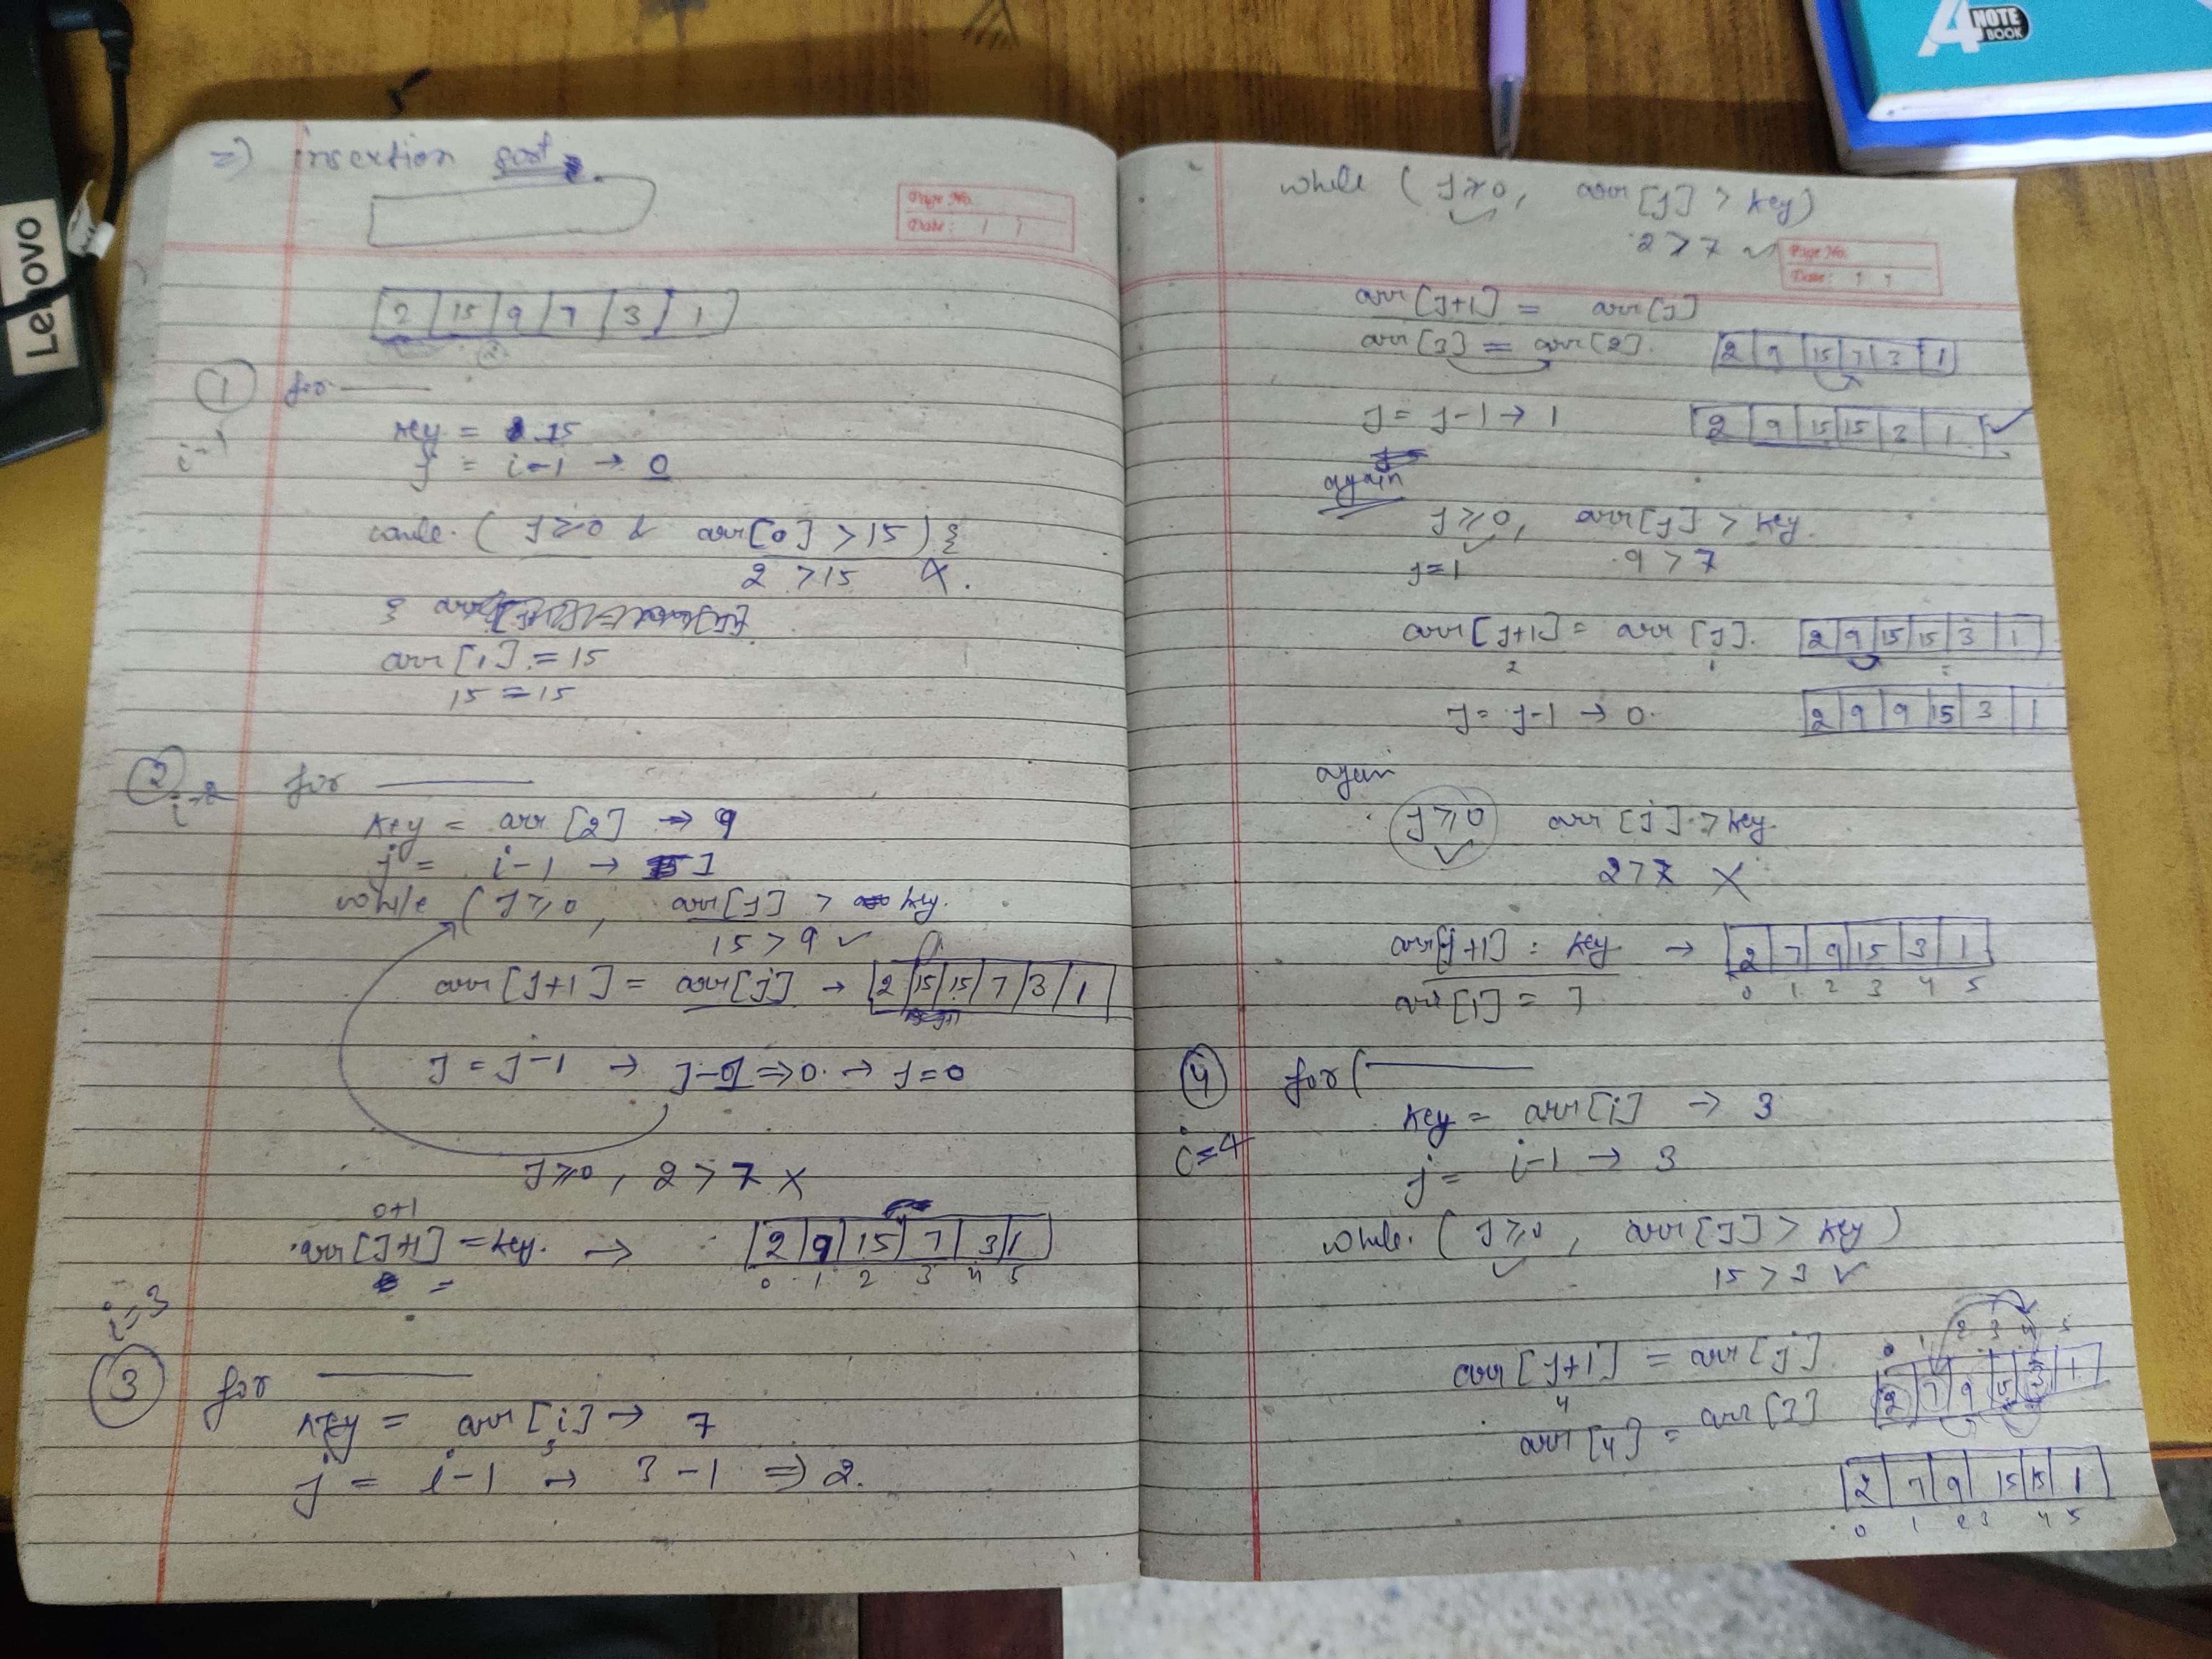 Lenovo
A4 NOTE BOOK
=> insertion sort
Page No.
Date:
2 | 15 | 9 | 7 | 3 | 1
① for
i=1
key = 15
j = i-1 → 0
while (J≥0 & arr[0] > 15) {
2 > 15 X.
}
arr[1] = 15
15 = 15
② for
i=2
key = arr[2] → 9
j = i-1 → 1
while (J≥0, arr[J] > key.
15 > 9 ✓
arr[J+1] = arr[J] → 2 | 15 | 15 | 7 | 3 | 1
J = J-1 → => 0. → J=0
J≥0, 2 > 7 X
0+1
arr[J+1] = key. → 2 | 9 | 15 | 7 | 3 | 1
=
0 1 2 3 4 5
i=3
③ for
key = arr[i] → 7
3
j = i-1 → 3-1 => 2.
while (J≥0, arr[J] > key)
✓
2 > 7 ✓
Page No.
Date:
arr[J+1] = arr[J]
arr[3] = arr[2]. 2 | 9 | 15 | 7 | 3 | 1
J = J-1 → 1 2 | 9 | 15 | 15 | 3 | 1 ✓
again
J≥0, arr[J] > key.
✓
J=1 9 > 7
arr[J+1] = arr[J]. 2 | 9 | 15 | 15 | 3 | 1
2 1
J = J-1 → 0. 2 | 9 | 9 | 15 | 3 | 1
again
J≥0 arr[J] > key.
✓
2>7 X
arr[j+1] = key → 2 | 7 | 9 | 15 | 3 | 1
arr[1] = 7 0 1 2 3 4 5
④ for (
i=4
key = arr[i] → 3
j = i-1 → 3
while (J≥0, arr[J] > key)
✓
15 > 3 ✓
0 1 2 3 4 5
arr[J+1] = arr[J]. 2 | 7 | 9 | 15 | 3 | 1
4
arr[4] = arr[3]
2 | 7 | 9 | 15 | 15 | 1
0 1 2 3 4 5